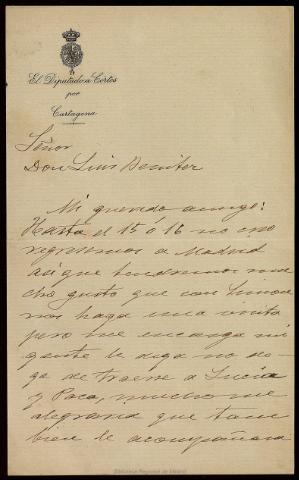 El Diputado a Cortes
por
Cartagena
Señor
Don Luis Benitez
Mi querido amigo:
Hasta el 15 ó 16 no
regresemos a Madrid
asi que tendremos mu
cho gusto que con
nos haga una visita
pero me encarga mi
gente le diga no de
ge de traerse a Lucia
y Paca, mucho me
alegraria que tam
bien le acompañara
Biblioteca Regional de Madrid